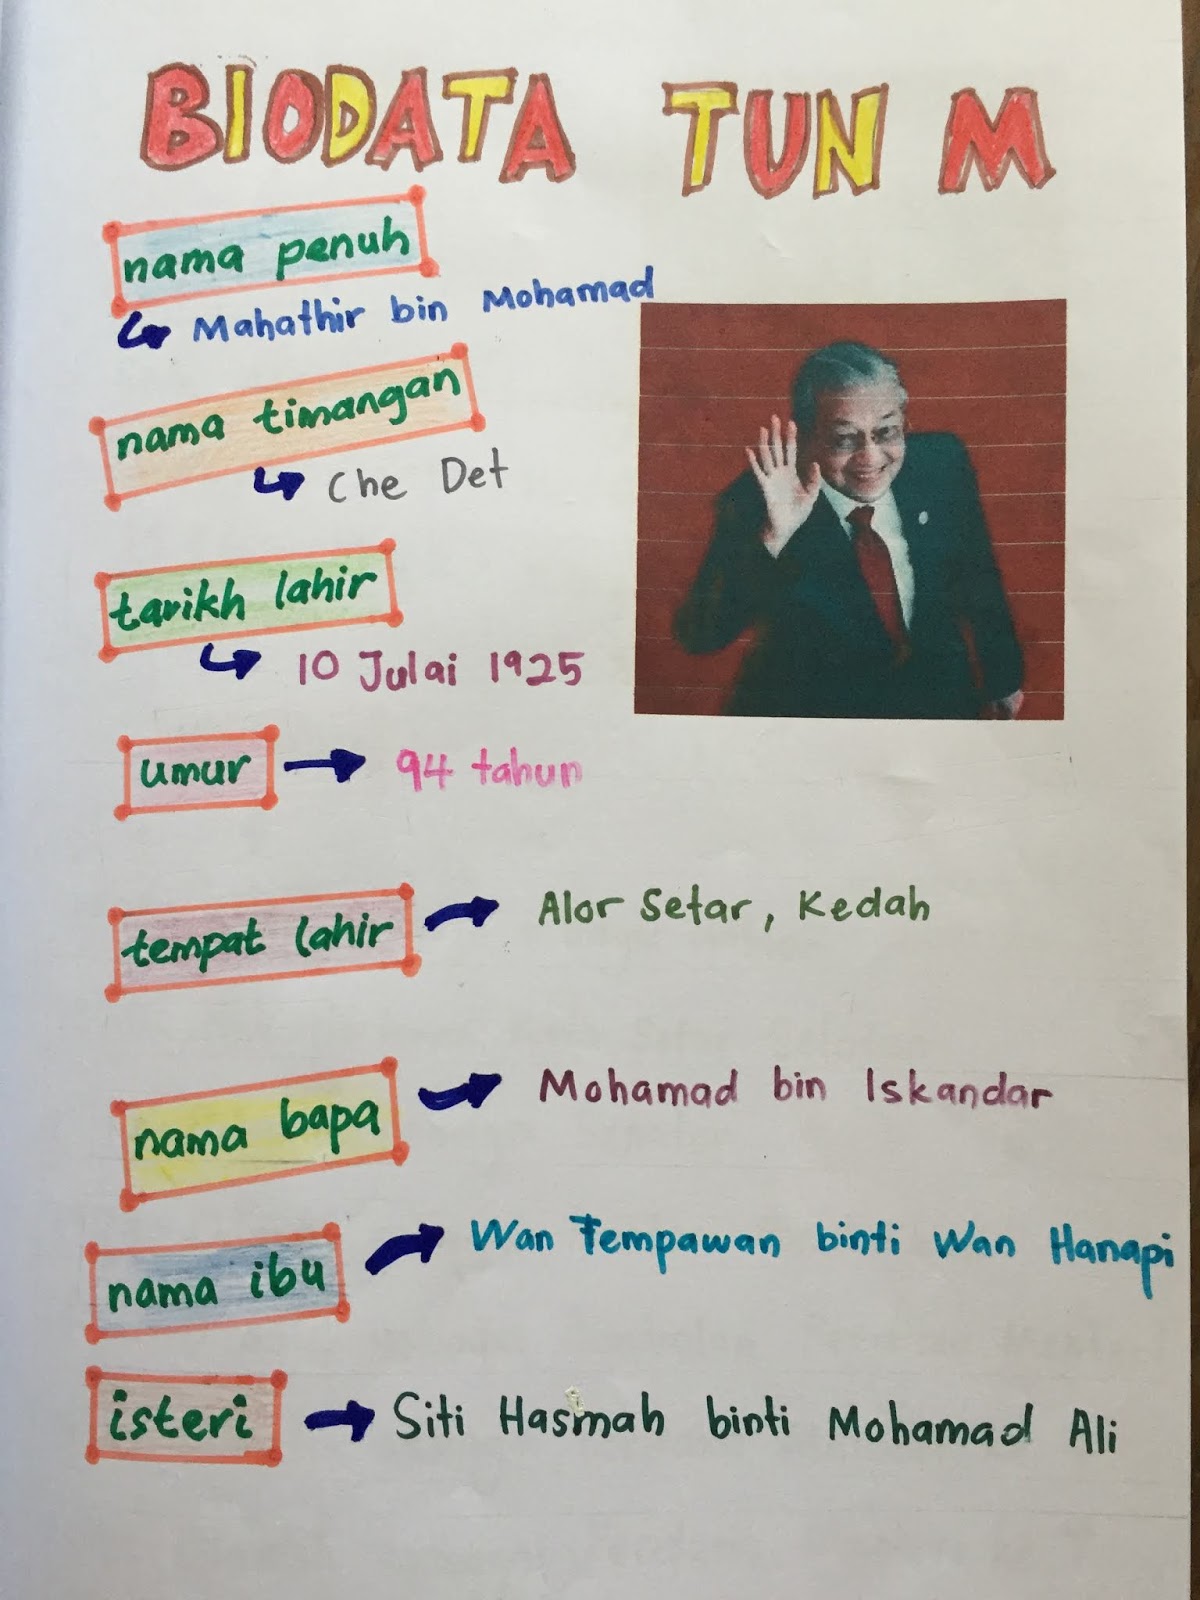 BIODATA TUN M
nama penuh
Mahathir bin Mohamad
nama timangan
Che Det
tarikh lahir
10 Julai 1925
umur
94 tahun
tempat lahir
Alor Setar, Kedah
nama bapa
Mohamad bin Iskandar
nama ibu
Wan Tempawan binti Wan Hanapi
isteri
Siti Hasmah binti Mohamad Ali